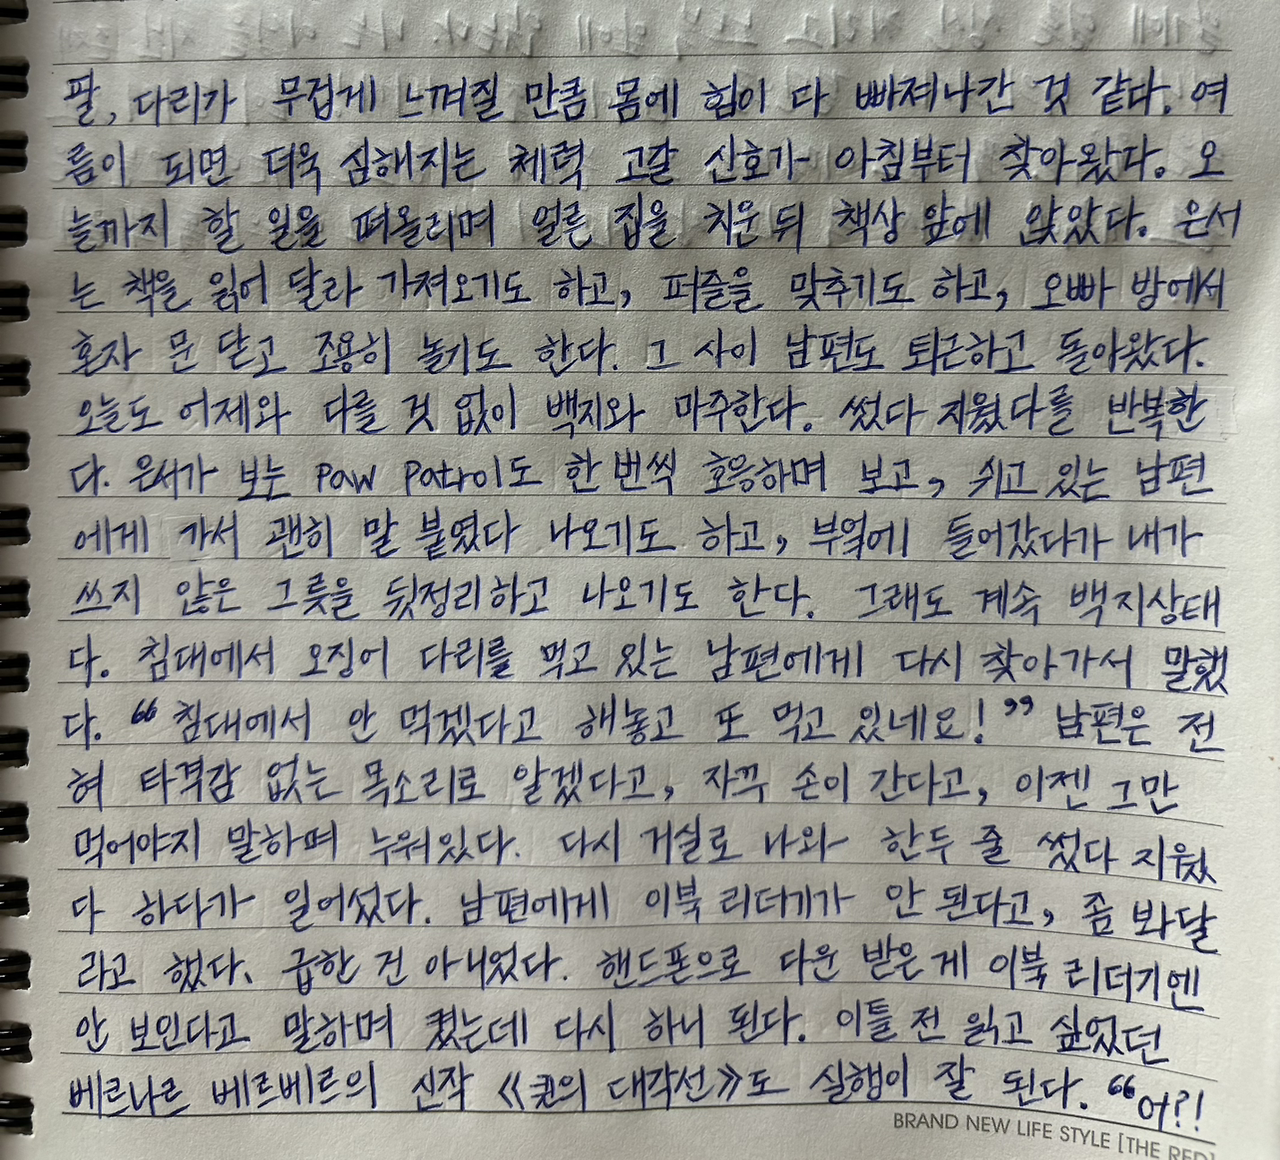 팔, 다리가 무겁게 느껴질 만큼 몸에 힘이 다 빠져나간 것 같다. 여
름이 되면 더욱 심해지는 체력 고갈 신호가 아침부터 찾아왔다. 오
늘까지 할 일을 떠올리며 얼른 집을 치운 뒤 책상 앞에 앉았다. 은서
는 책을 읽어 달라 가져오기도 하고, 퍼즐을 맞추기도 하고, 오빠 방에서
혼자 문 닫고 조용히 놀기도 한다. 그 사이 남편도 퇴근하고 돌아왔다.
오늘도 어제와 다를 것 없이 백지와 마주한다. 썼다 지웠다를 반복한
다. 은서가 보는 Paw Patrol도 한 번씩 호응하며 보고, 쉬고 있는 남편
에게 가서 괜히 말 붙였다 나오기도 하고, 부엌에 들어갔다가 내가
쓰지 않은 그릇을 뒷정리하고 나오기도 한다. 그래도 계속 백지상태
다. 침대에서 오징어 다리를 먹고 있는 남편에게 다시 찾아가서 말했
다. “침대에서 안 먹겠다고 해놓고 또 먹고 있네요!” 남편은 전
혀 타격감 없는 목소리로 알겠다고, 자꾸 손이 간다고, 이젠 그만
먹어야지 말하며 누워있다. 다시 거실로 나와 한두 줄 썼다 지웠
다 하다가 일어섰다. 남편에게 이북 리더기가 안 된다고, 좀 봐달
라고 했다. 급한 건 아니었다. 핸드폰으로 다운 받은 게 이북 리더기엔
안 보인다고 말하며 켰는데 다시 하니 된다. 이틀 전 읽고 싶었던
베르나르 베르베르의 신작 《퀸의 대각선》도 실행이 잘 된다. “어?!
BRAND NEW LIFE STYLE [THE RED]